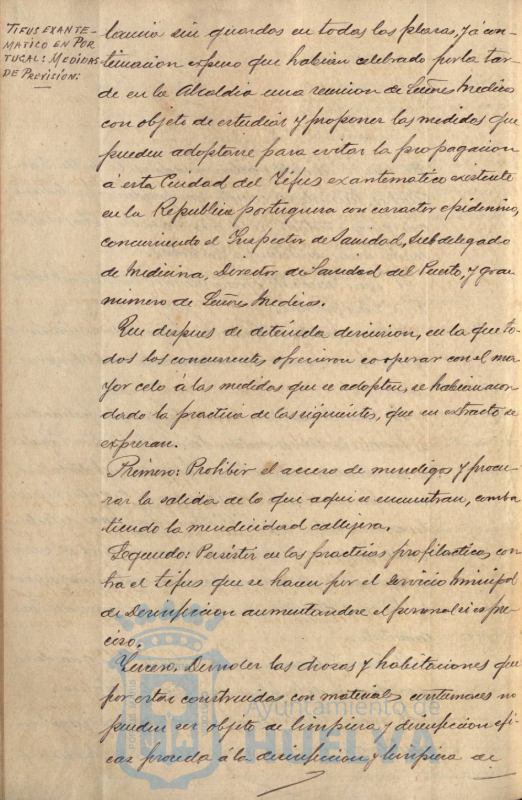 TIFUS EXANTE-
MATICO EN POR
TUGAL: MEDIDAS
DE PREVISION:
lancia sin guardas en todas las plazas, y á con-
tinuacion expuso que habian celebrado por la tar-
de en la Alcaldia una reunion de Señores Medicos
con objeto de estudiar y proponer las medidas que
pueden adoptarse para evitar la propagacion
á esta Ciudad del Tifus exantematico existente
en la Republica portuguesa con caracter epidemico,
concurriendo el Inspector de Sanidad, Subdelegado
de Medicina, Director de Sanidad del Puerto, y gran
número de Señores Medicos.
Que despues de detenida discusion, en la que to-
dos los concurrentes ofrecieron cooperar con el ma
yor celo á las medidas que se adopten, se habian acor
dado la practica de las siguientes, que en extracto se
expresan.
Primero: Prohibir el acceso de mendigos y procu-
rar la salida de lo que aqui se encuentran, comba
tiendo la mendicidad callejera.
Segundo: Persistir en las practicas profilacticas con
tra el tifus que se hacen por el Servicio Municipal
de Desinfeccion aumentandose el personal si es pre
ciso.
Tercero. Demoler las chozas y habitaciones que
por estar construidas con materiales contumaces no
pueden ser objeto de limpieza y desinfeccion efi-
caz proceda á la desinfeccion y limpieza de
Ayuntamiento de
HUELVA